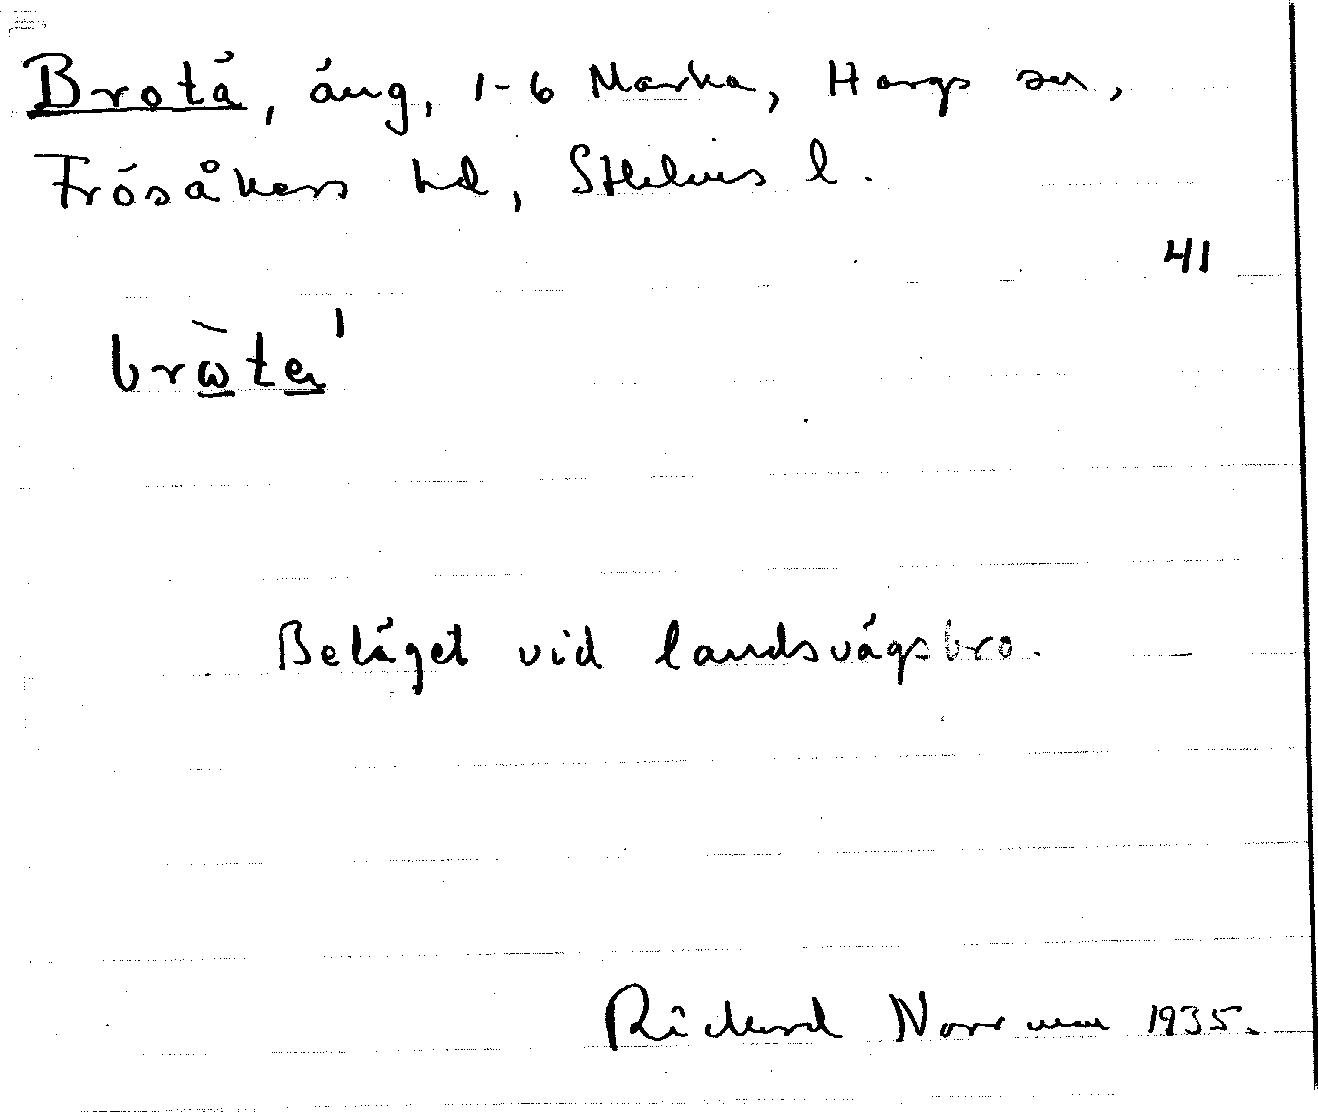 Brotä, äng, 1-6 Marka, Hargs sn,
Frösåkers hd, Sthlms l.
41
Beläget vid landsvägsbro.
Rickard Norrman 1935.